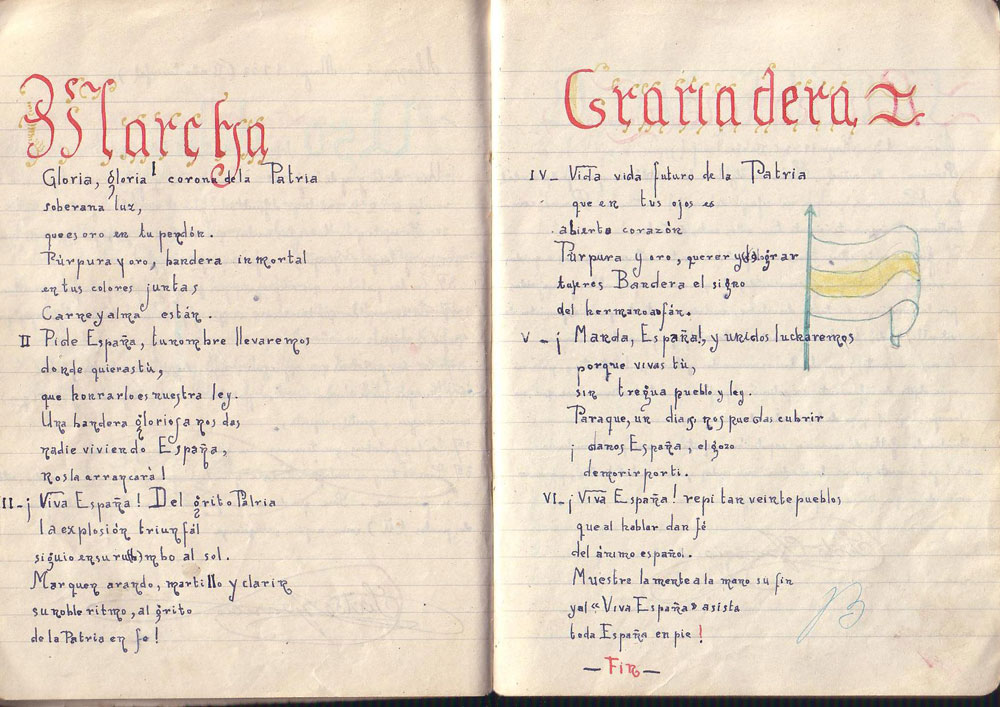 Marcha
Gloria, gloria! corona de la Patria
soberana luz,
que es oro en tu pendón.
Púrpura y oro, bandera inmortal
en tus colores juntas
Carne y alma están.
II Pide España, tu nombre llevaremos
donde quieras tú,
que honrarlo es nuestra ley.
Una bandera gloriosa nos das
nadie viviendo España,
nos la arrancará!
II-¡ Viva España! Del grito Patria
la explosión triunfál
siguio en su rumbo al sol.
Marquen arando, martillo y clarín
su noble ritmo, al grito
de la Patria en fe!
Granadera
IV- Vida vida futuro de la Patria
que en tus ojos es
abierto corazón
Púrpura y oro, querer y lograr
tu eres Bandera el signo
del hermano afán.
V-¡ Manda, España!, y unidos lucharemos
porque vivas tú,
sin tregua pueblo y ley.
Para que, un dia, nos puedas cubrir
¡ danos España, el gozo
de morir por ti.
VI-¡ Viva España! repitan veinte pueblos
que al hablar dan fé
del ánimo español.
Muestre la mente a la mano su fin
y al «Viva España» asista
toda España en pie!
- Fin -
B